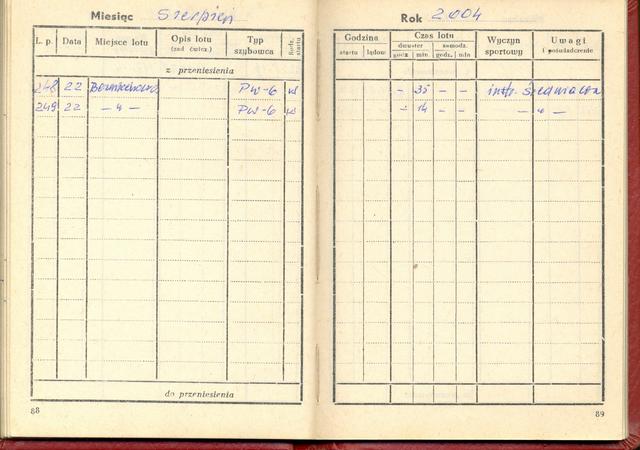 Miesiąc Sierpień
L. p. Data Miejsce lotu Opis lotu (zad. ćwicz.) Typ szybowca Rodz. startu
z przeniesienia
248 22 PW-6 W
249 22 — „ — PW-6 W
do przeniesienia
88
Rok 2004
Godzina Czas lotu Wyczyn sportowy Uwagi i poświadczenie
startu lądow. dwuster samodz.
godz. min. godz. min
- 35 - - instr.
- 14 - - — „ —
89